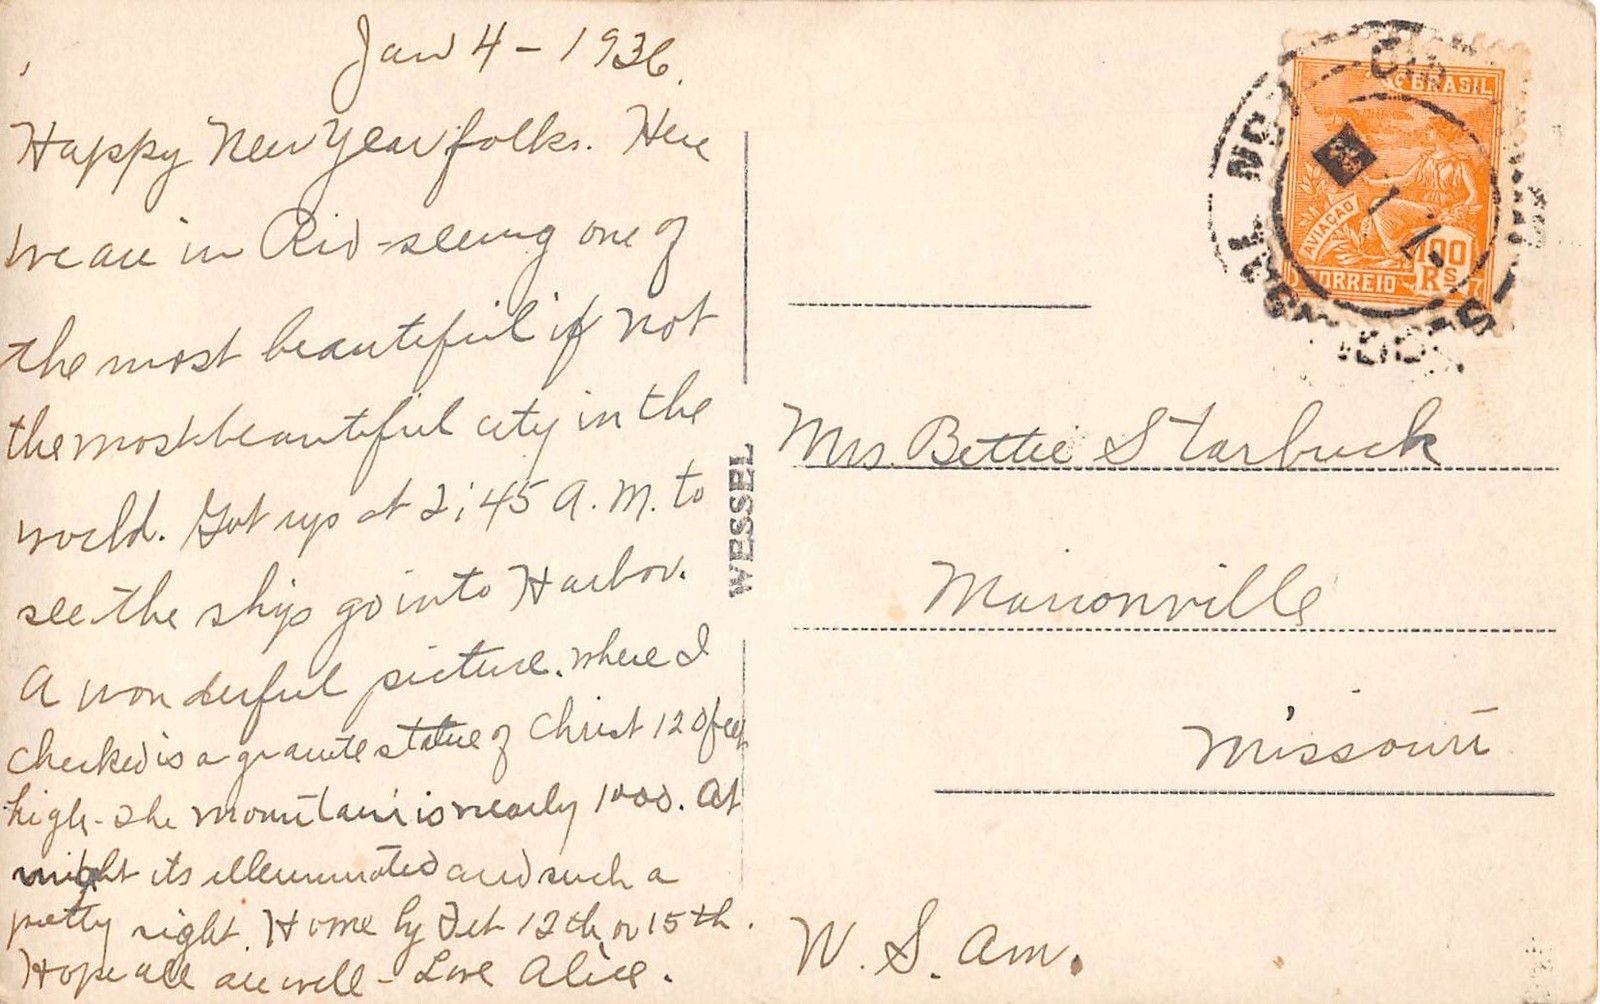 Jan 4 - 1936.
Happy New Year folks. Here
we are in Rio - seeing one of
the most beautiful if not
the most beautiful city in the
world. Got up at 2;45 A.M. to
see the ships go into Harbor.
A wonderful picture. where I
checked is a granite statue of Christ 120 feet
high - The mountain is nearly 1000. At
night its illuminated and such a
pretty sight. Home by Feb 12th or 15th.
Hope all are well - Love Alice.
WESSEL
BRASIL
AVIAÇÃO
100
RS
CORREIO
Mrs. Bettie Starbuck
Marionville
Missouri
W. S. Am.